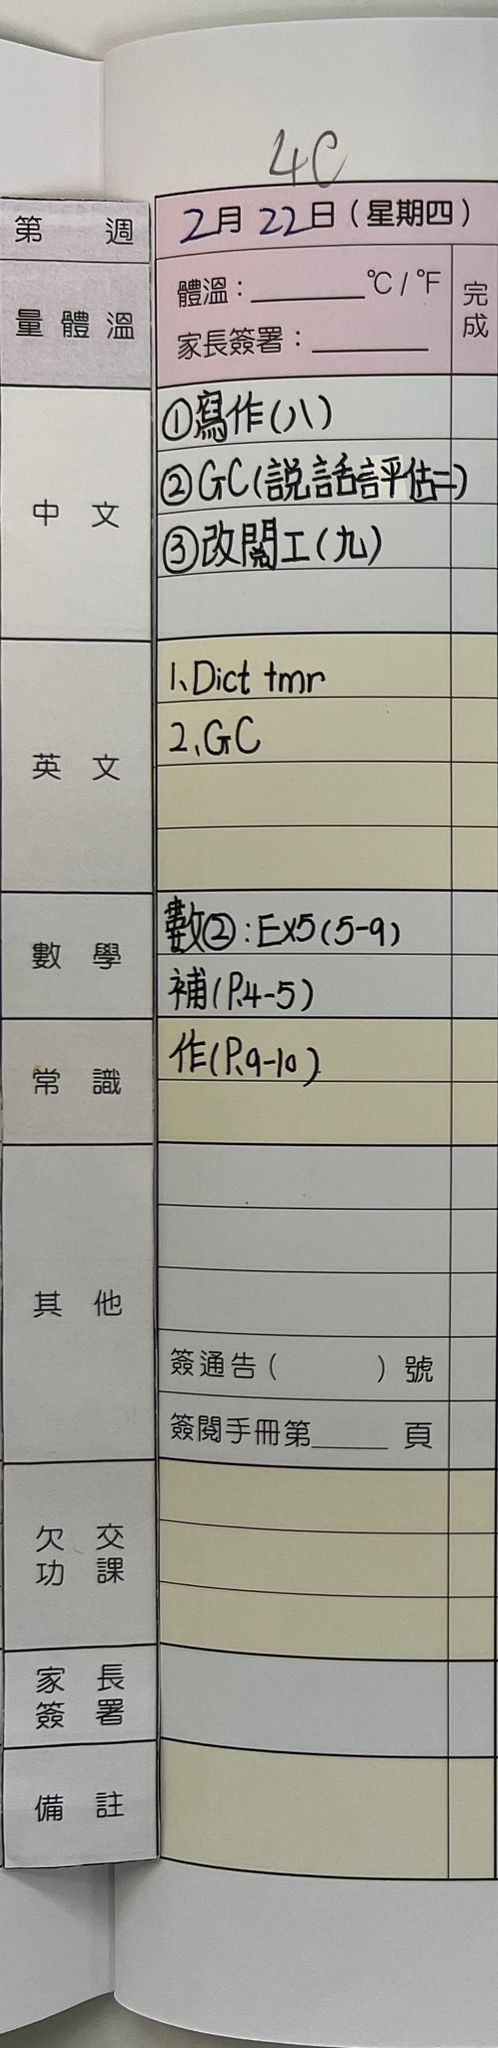 4C
第 週
2月22日(星期四)
量體溫
體溫：______°C/°F
家長簽署：______
完成
中文
①寫作(八)
②GC(説話評估二)
③改閱工(九)
英文
1、Dict tmr
2、GC
數學
數②:Ex5(5-9)
補(P.4-5)
常識
作(P.9-10)
其他
簽通告( )號
簽閱手冊第____頁
欠交功課
家長簽署
備註